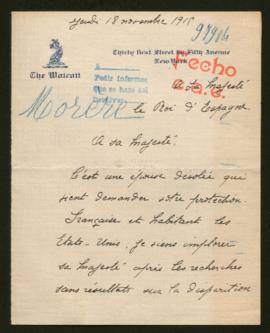 Jeudi 18 novembre 1915
97904
Thirty first Street by Fifth Avenue
New York
The Wolcott
A
Pedir informes
Que se haga del
Fecho
A Sa Majesté
le Roi d'Espagne
A sa Majesté.
C'est une épouse désolée qui
vient demander votre protection.
Française et habitant les
Etats-Unis, je viens implorer
sa Majesté après les recherches
sans résultats sur la disparition